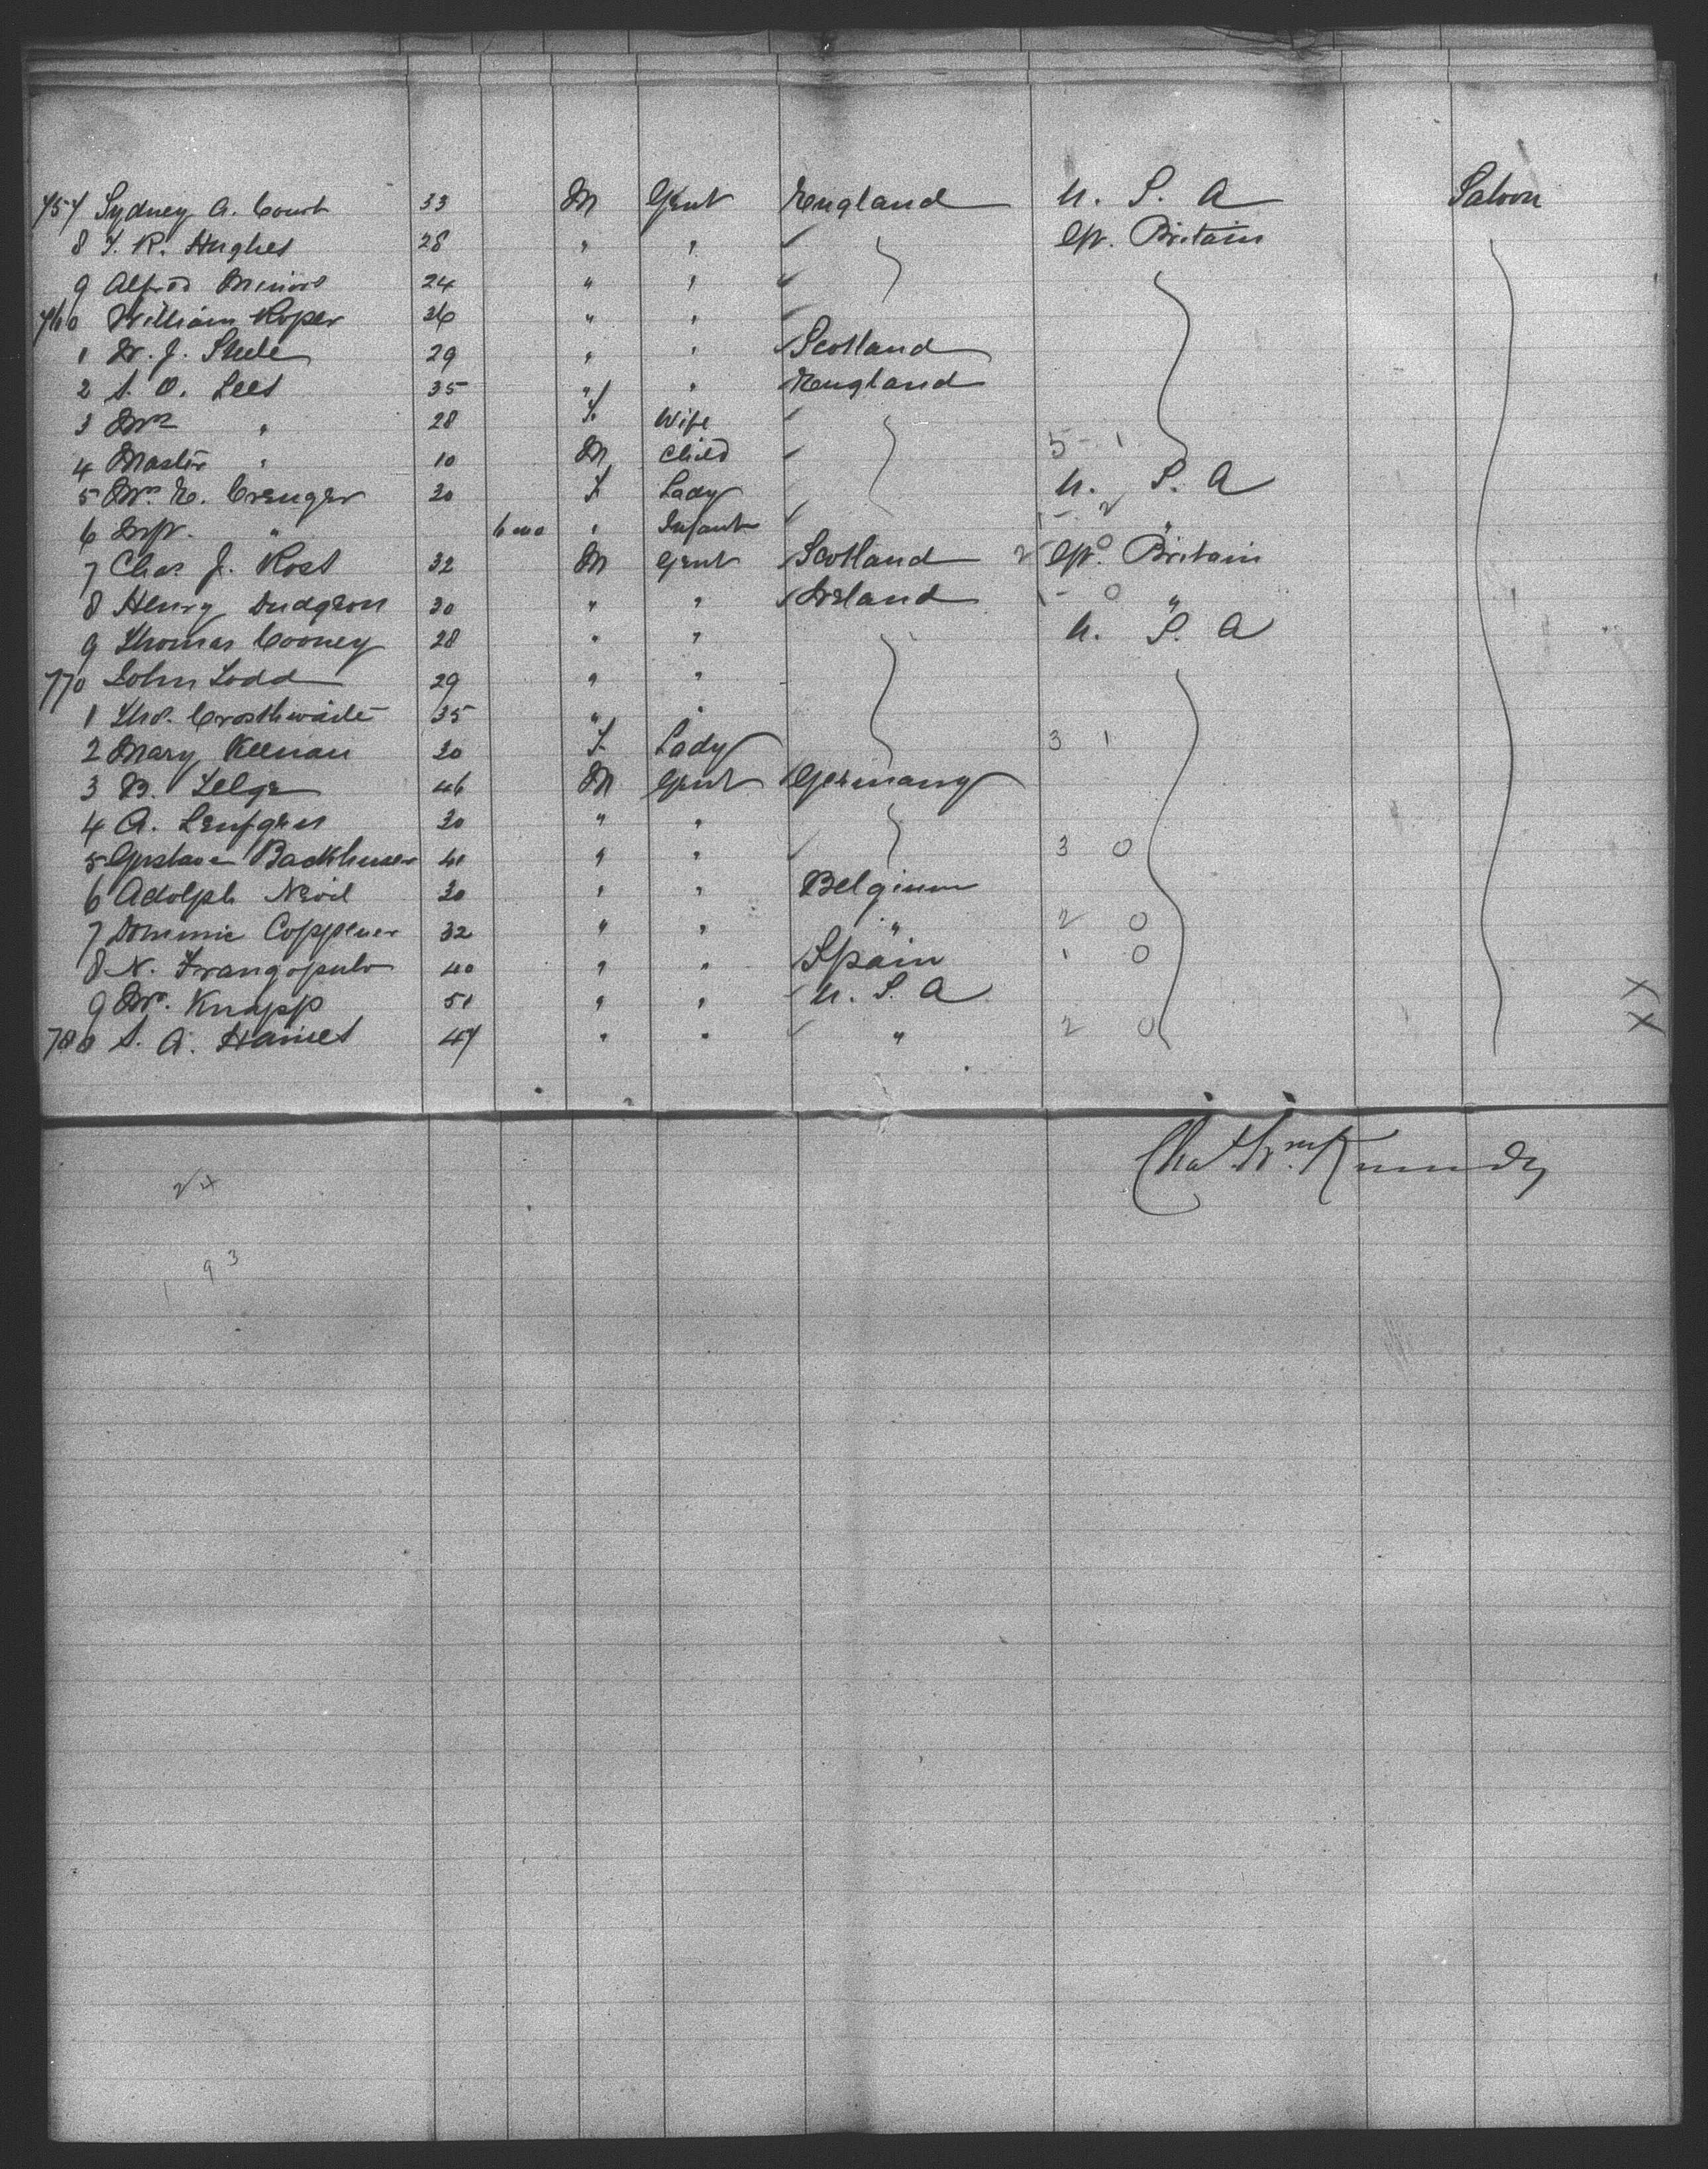 757 Sydney A. Court 33 M Gent England U. S. A Saloon
8 T. R. Hughes 28 " " Gt. Britain
9 Alfred Minors 24 " "
760 William Roper 36 " "
1 W. J. Steele 29 " " Scotland
2 S. O. Lees 35 " " England
3 Mrs " 28 F. Wife
4 Master " 10 M Child 5 - 1
5 Mrs E. Crenger 30 F Lady U. S. A
6 Inft. " 6 mo " Infant 1 - 2 "
7 Chas J. Rost 32 M Gent Scotland 2 0 Gt. Britain
8 Henry Dudgeon 30 " " Ireland 1 - 0 "
9 Thomas Cooney 28 " " U. S. A
770 John Todd 29 " "
1 Thos. Crosthwaite 35 " "
2 Mary Keenan 30 F. Lady 3 1
3 B. 46 M Gent Germany
4 A. 30 " "
5 Gustave Backhuser 41 " " 3 0
6 Adolph 30 " " Belgium
7 Dominic Coppener 32 " " " 2 0
8 N. Frangopulo 40 " " Spain 1 0
9 Mr. Knapp 51 " " U. S. A X
780 S. A. Haines 47 " " " 2 0 X
Chas Wm. Kennedy
24
1 9 3